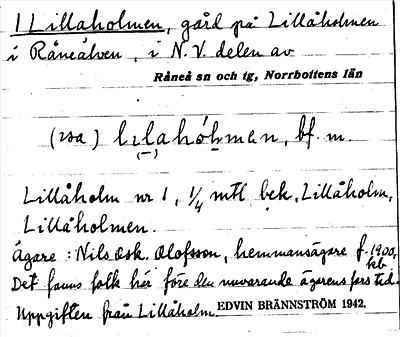 1 Lillaholmen, gård på Lillåholmen
i Råneälven, i N.V. delen av
Råneå sn och tg, Norrbottens län
(rsa) lılahólmɐn, bf. m.
(–)
Lillåholm nr 1, 1/4 mtl bek. Lillåholm,
Lillåholmen.
Ägare: Nils Osk. Olofsson, hemmansägare f. 1900,
Det fanns folk här före den nuvarande ägarens fars tid.
Uppgiften från Lillåholm EDVIN BRÄNNSTRÖM 1942.